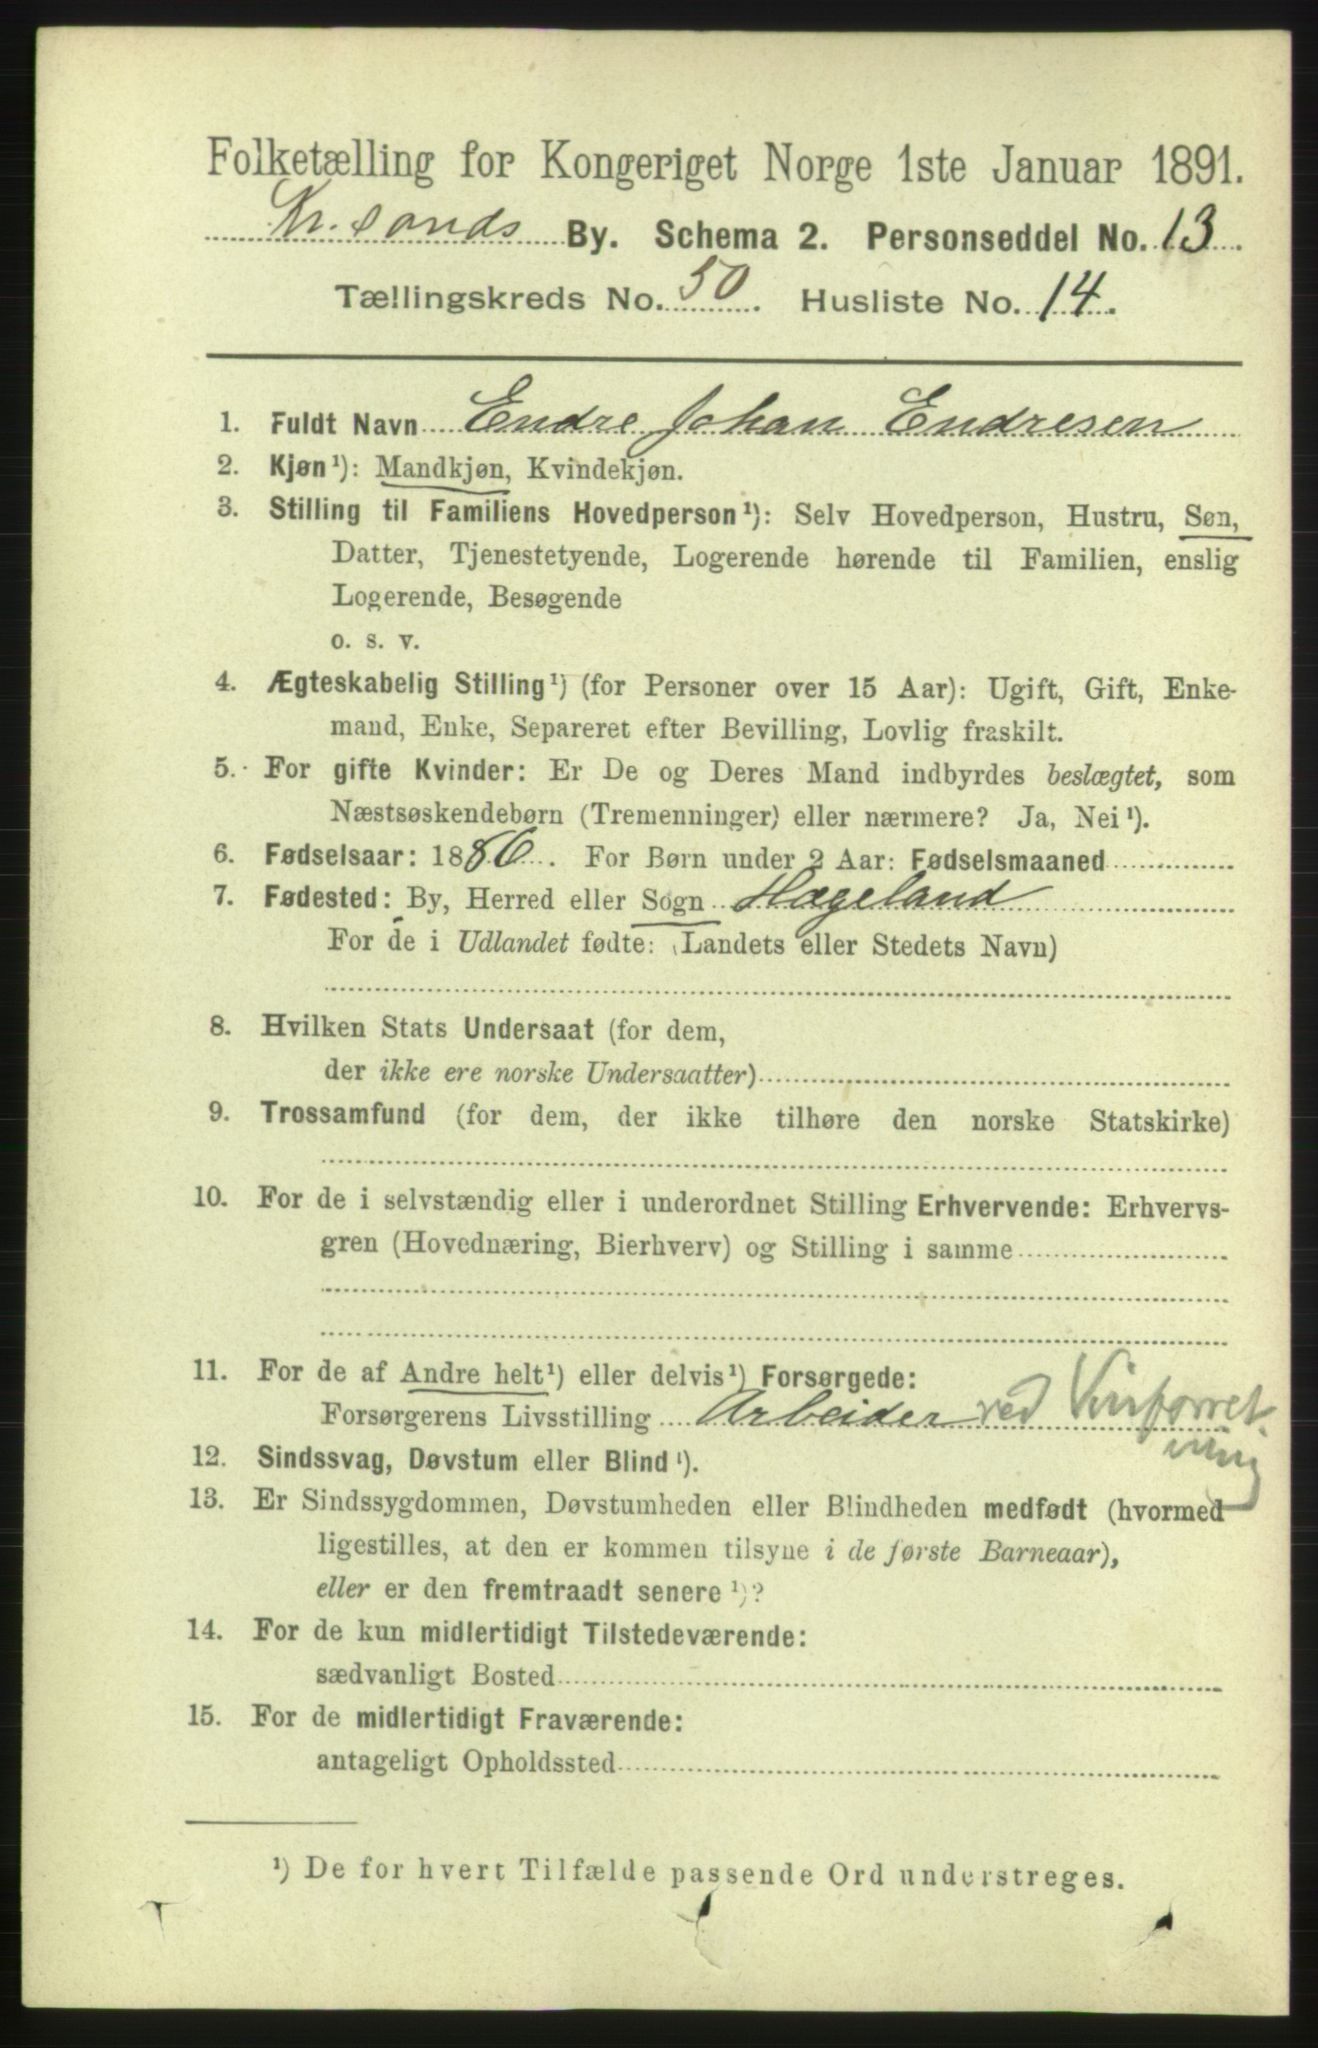 Folketælling for Kongeriget Norge 1ste Januar 1891.
Kr.sands By. Schema 2. Personseddel No. 13
Tællingskreds No. 50. Husliste No. 14.
1. Fuldt Navn Endre Johan Endresen
2. Kjøn¹): Mandkjøn, Kvindekjøn.
3. Stilling til Familiens Hovedperson¹): Selv Hovedperson, Hustru, Søn,
Datter, Tjenestetyende, Logerende hørende til Familien, enslig
Logerende, Besøgende
o. s. v.
4. Ægteskabelig Stilling¹) (for Personer over 15 Aar): Ugift, Gift, Enke-
mand, Enke, Separeret efter Bevilling, Lovlig fraskilt.
5. For gifte Kvinder: Er De og Deres Mand indbyrdes beslægtet, som
Næstsøskendebørn (Tremenninger) eller nærmere? Ja, Nei¹).
6. Fødselsaar: 1886. For Børn under 2 Aar: Fødselsmaaned
7. Fødested: By, Herred eller Sogn Hægeland
For de i Udlandet fødte: (Landets eller Stedets Navn)
8. Hvilken Stats Undersaat (for dem,
der ikke ere norske Undersaatter)
9. Trossamfund (for dem, der ikke tilhøre den norske Statskirke)
10. For de i selvstændig eller i underordnet Stilling Erhvervende: Erhvervs-
gren (Hovednæring, Bierhverv) og Stilling i samme
11. For de af Andre helt¹) eller delvis¹) Forsørgede:
Forsørgerens Livsstilling Arbeider ved Vinforret
ning
12. Sindssvag, Døvstum eller Blind¹).
13. Er Sindssygdommen, Døvstumheden eller Blindheden medfødt (hvormed
ligestilles, at den er kommen tilsyne i de første Barneaar),
eller er den fremtraadt senere¹)?
14. For de kun midlertidigt Tilstedeværende:
sædvanligt Bosted
15. For de midlertidigt Fraværende:
antageligt Opholdssted
¹) De for hvert Tilfælde passende Ord understreges.